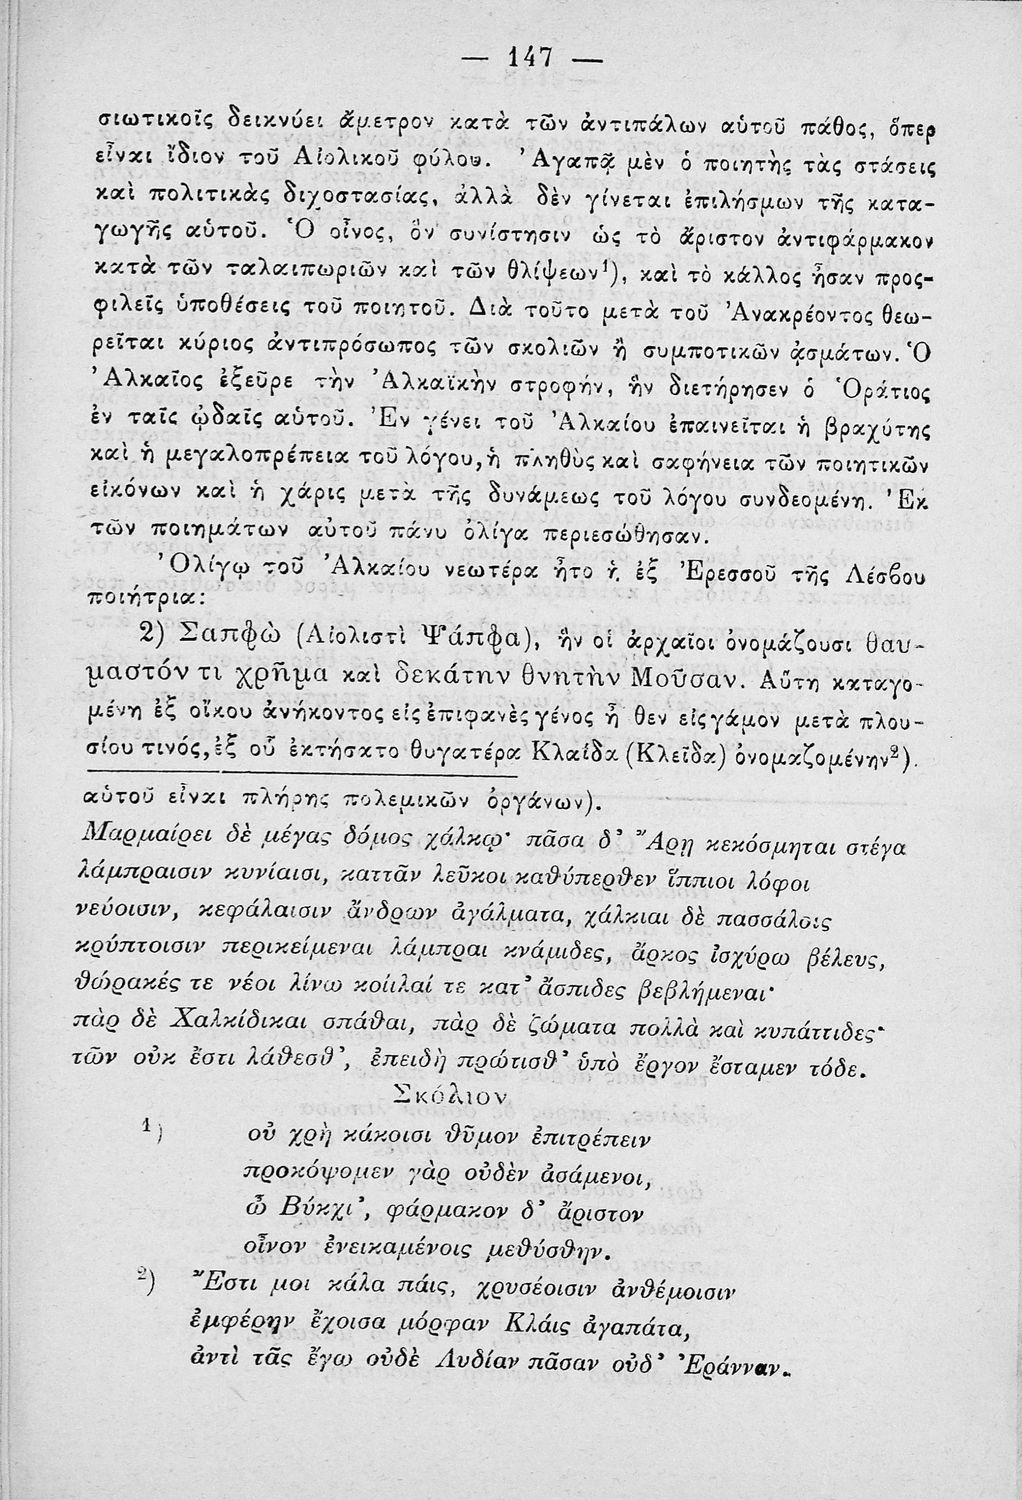 — 147 —
σιωτικοῖς δεικνύει ἄμετρον κατὰ τῶν ἀντιπάλων αὑτοῦ πάθος, ὅπερ
εἶναι ἴδιον τοῦ Αἰολικοῦ φύλου. Ἀγαπᾷ μὲν ὁ ποιητὴς τὰς στάσεις
καὶ πολιτικὰς διχοστασίας, ἀλλὰ δὲν γίνεται ἐπιλήσμων τῆς κατα-
γωγῆς αὑτοῦ. Ὁ οἶνος, ὃν συνίστησιν ὡς τὸ ἄριστον ἀντιφάρμακον
κατὰ τῶν ταλαιπωριῶν καὶ τῶν θλίψεων¹), καὶ τὸ κάλλος ἦσαν προς-
φιλεῖς ὑποθέσεις τοῦ ποιητοῦ. Διὰ τοῦτο μετὰ τοῦ Ἀνακρέοντος θεω-
ρεῖται κύριος ἀντιπρόσωπος τῶν σκολιῶν ἢ συμποτικῶν ᾀσμάτων. Ὁ
Ἀλκαῖος ἐξεῦρε τὴν Ἀλκαϊκὴν στροφήν, ἣν διετήρησεν ὁ Ὁράτιος
ἐν ταῖς ᾠδαῖς αὑτοῦ. Ἐν γένει τοῦ Ἀλκαίου ἐπαινεῖται ἡ βραχύτης
καὶ ἡ μεγαλοπρέπεια τοῦ λόγου, ἡ πληθὺς καὶ σαφήνεια τῶν ποιητικῶν
εἰκόνων καὶ ἡ χάρις μετὰ τῆς δυνάμεως τοῦ λόγου συνδεομένη. Ἐκ
τῶν ποιημάτων αὐτοῦ πάνυ ὀλίγα περιεσώθησαν.
Ὀλίγῳ τοῦ Ἀλκαίου νεωτέρα ἦτο ἡ ἐξ Ἐρεσσοῦ τῆς Λέσβου
ποιήτρια:
2) Σαπφὼ (Αἰολιστὶ Ψάπφα), ἣν οἱ ἀρχαῖοι ὀνομάζουσι θαυ-
μαστόν τι χρῆμα καὶ δεκάτην θνητὴν Μοῦσαν. Αὕτη καταγο-
μένη ἐξ οἴκου ἀνήκοντος εἰς ἐπιφανὲς γένος ἦ θεν εἰς γάμον μετὰ πλου-
σίου τινός, ἐξ οὗ ἐκτήσατο θυγατέρα Κλαΐδα (Κλεῖδα) ὀνομαζομένην²).
αὑτοῦ εἶναι πλήρης πολεμικῶν ὀργάνων).
Μαρμαίρει δὲ μέγας δόμος χάλκῳ· πᾶσα δ᾽ Ἄρῃ κεκόσμηται στέγα
λάμπραισιν κυνίαισι, καττᾶν λεῦκοι καθύπερθεν ἵππιοι λόφοι
νεύοισιν, κεφάλαισιν ἄνδρων ἀγάλματα, χάλκιαι δὲ πασσάλοις
κρύπτοισιν περικείμεναι λάμπραι κνάμιδες, ἄρκος ἰσχύρω βέλευς,
θώρακές τε νέοι λίνω κοίιλαί τε κατ᾽ ἄσπιδες βεβλήμεναι·
πὰρ δὲ Χαλκίδικαι σπάθαι, πὰρ δὲ ζώματα πολλὰ καὶ κυπάττιδες·
τῶν οὐκ ἔστι λάθεσθ᾽, ἐπειδὴ πρώτισθ᾽ ὑπὸ ἔργον ἔσταμεν τόδε.
Σκόλιον
¹) οὐ χρὴ κάκοισι θῦμον ἐπιτρέπειν
προκόψομεν γὰρ οὐδὲν ἀσάμενοι,
ὦ Βύκχι᾽, φάρμακον δ᾽ ἄριστον
οἶνον ἐνεικαμένοις μεθύσθην.
²) Ἔστι μοι κάλα πάις, χρυσέοισιν ἀνθέμοισιν
ἐμφέρην ἔχοισα μόρφαν Κλάις ἀγαπάτα,
ἀντὶ τᾶς ἔγω οὐδὲ Λυδίαν πᾶσαν οὐδ᾽ Ἐράνναν.